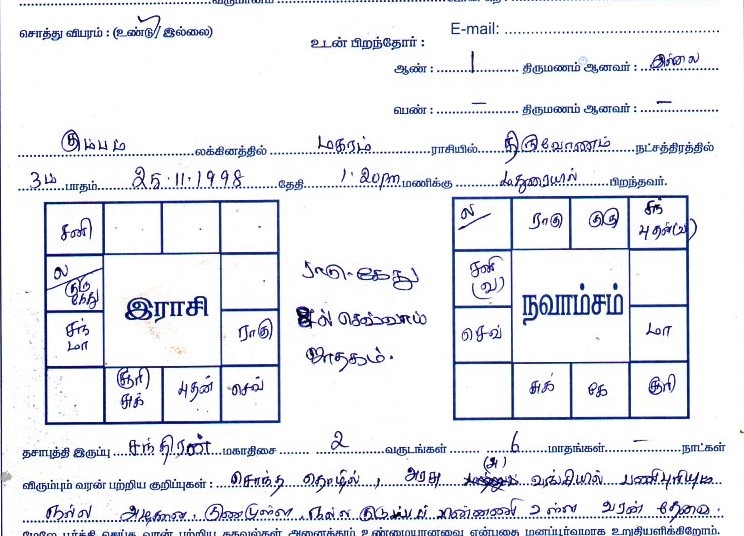 சொத்து விபரம் : (உண்டு / இல்லை)
E-mail:
உடன் பிறந்தோர் :
ஆண் : 1 திருமணம் ஆனவர் : இல்லை
பெண் : – திருமணம் ஆனவர் : –
கும்பம் லக்கினத்தில் மகரம் ராசியில் திருவோணம் நட்சத்திரத்தில்
3ம் பாதம் 25.11.1998 தேதி 1.20pm மணிக்கு மதுரையில் பிறந்தவர்.
சனி
ல/ குரு கேது
சந் மா
இராசி
ராகு
சூரி சுக்
புதன்
செவ்
ராகு-கேது
8ல் செவ்வாய்
ஜாதகம்.
ல/
ராகு
குரு
சந் புதன்(வ)
சனி (வ)
நவாம்சம்
செவ்
மா
சுக்
கே
சூரி
தசாபுத்தி இருப்பு சந்திரன் மகாதிசை 2 வருடங்கள் 6 மாதங்கள் – நாட்கள்
விரும்பும் வரன் பற்றிய குறிப்புகள் : சொந்த தொழில், அரசு (அ) வங்கியில் பணிபுரியும்
நல்ல குணமுள்ள, நல்ல குடும்ப பின்னணி உள்ள வரன் தேவை.
மேலே பூர்த்தி செய்த வரன் பற்றிய தகவல்கள் அனைத்தும் உண்மையானவை என்பதை மனப்பூர்வமாக உறுதியளிக்கிறோம்.